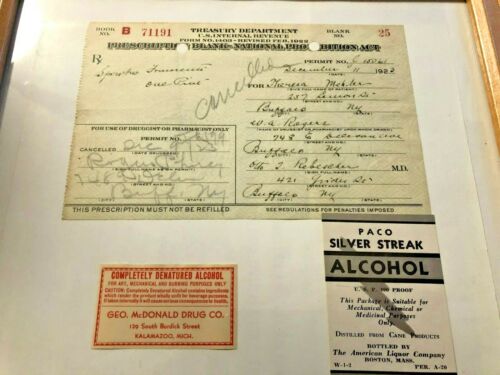 BOOK NO. B 71191
TREASURY DEPARTMENT
U.S. INTERNAL REVENUE
FORM NO. 1403—REVISED FEB. 1922
BLANK NO. 25
PRESCRIPTION BLANK—NATIONAL PROHIBITION ACT
PERMIT NO.
℞
Spiritus Frumenti
One Pint
Cancelled
December 11 1922
FOR Theresa
(FULL NAME OF PATIENT)
(STREET AND NO.)
Buffalo NY
(CITY) (STATE)
W. A. Rogers
748 E
(STREET AND NO.)
Buffalo NY
(CITY) (STATE)
M.D.
421 Grider St
(STREET AND NO.)
Buffalo NY
(CITY) (STATE)
FOR USE OF DRUGGIST OR PHARMACIST ONLY
CANCELLED
(STREET AND NO.)
Buff NY
(CITY) (STATE)
THIS PRESCRIPTION MUST NOT BE REFILLED.
SEE REGULATIONS FOR PENALTIES IMPOSED
COMPLETELY DENATURED ALCOHOL
FOR ART, MECHANICAL AND BURNING PURPOSES ONLY
CAUTION: Completely Denatured Alcohol contains ingredients
which render the product wholly unfit for beverage purposes.
If taken internally it will cause serious consequences to health.
GEO. McDONALD DRUG CO.
120 South Burdick Street
KALAMAZOO, MICH.
PACO
SILVER STREAK
ALCOHOL
U. S. P. PROOF
This Package is Suitable for
Mechanical, Chemical or
Medicinal Purposes
Only.
DISTILLED FROM CANE PRODUCTS
BOTTLED BY
The American Liquor Company
BOSTON, MASS.
W-1-2 PER. A-20